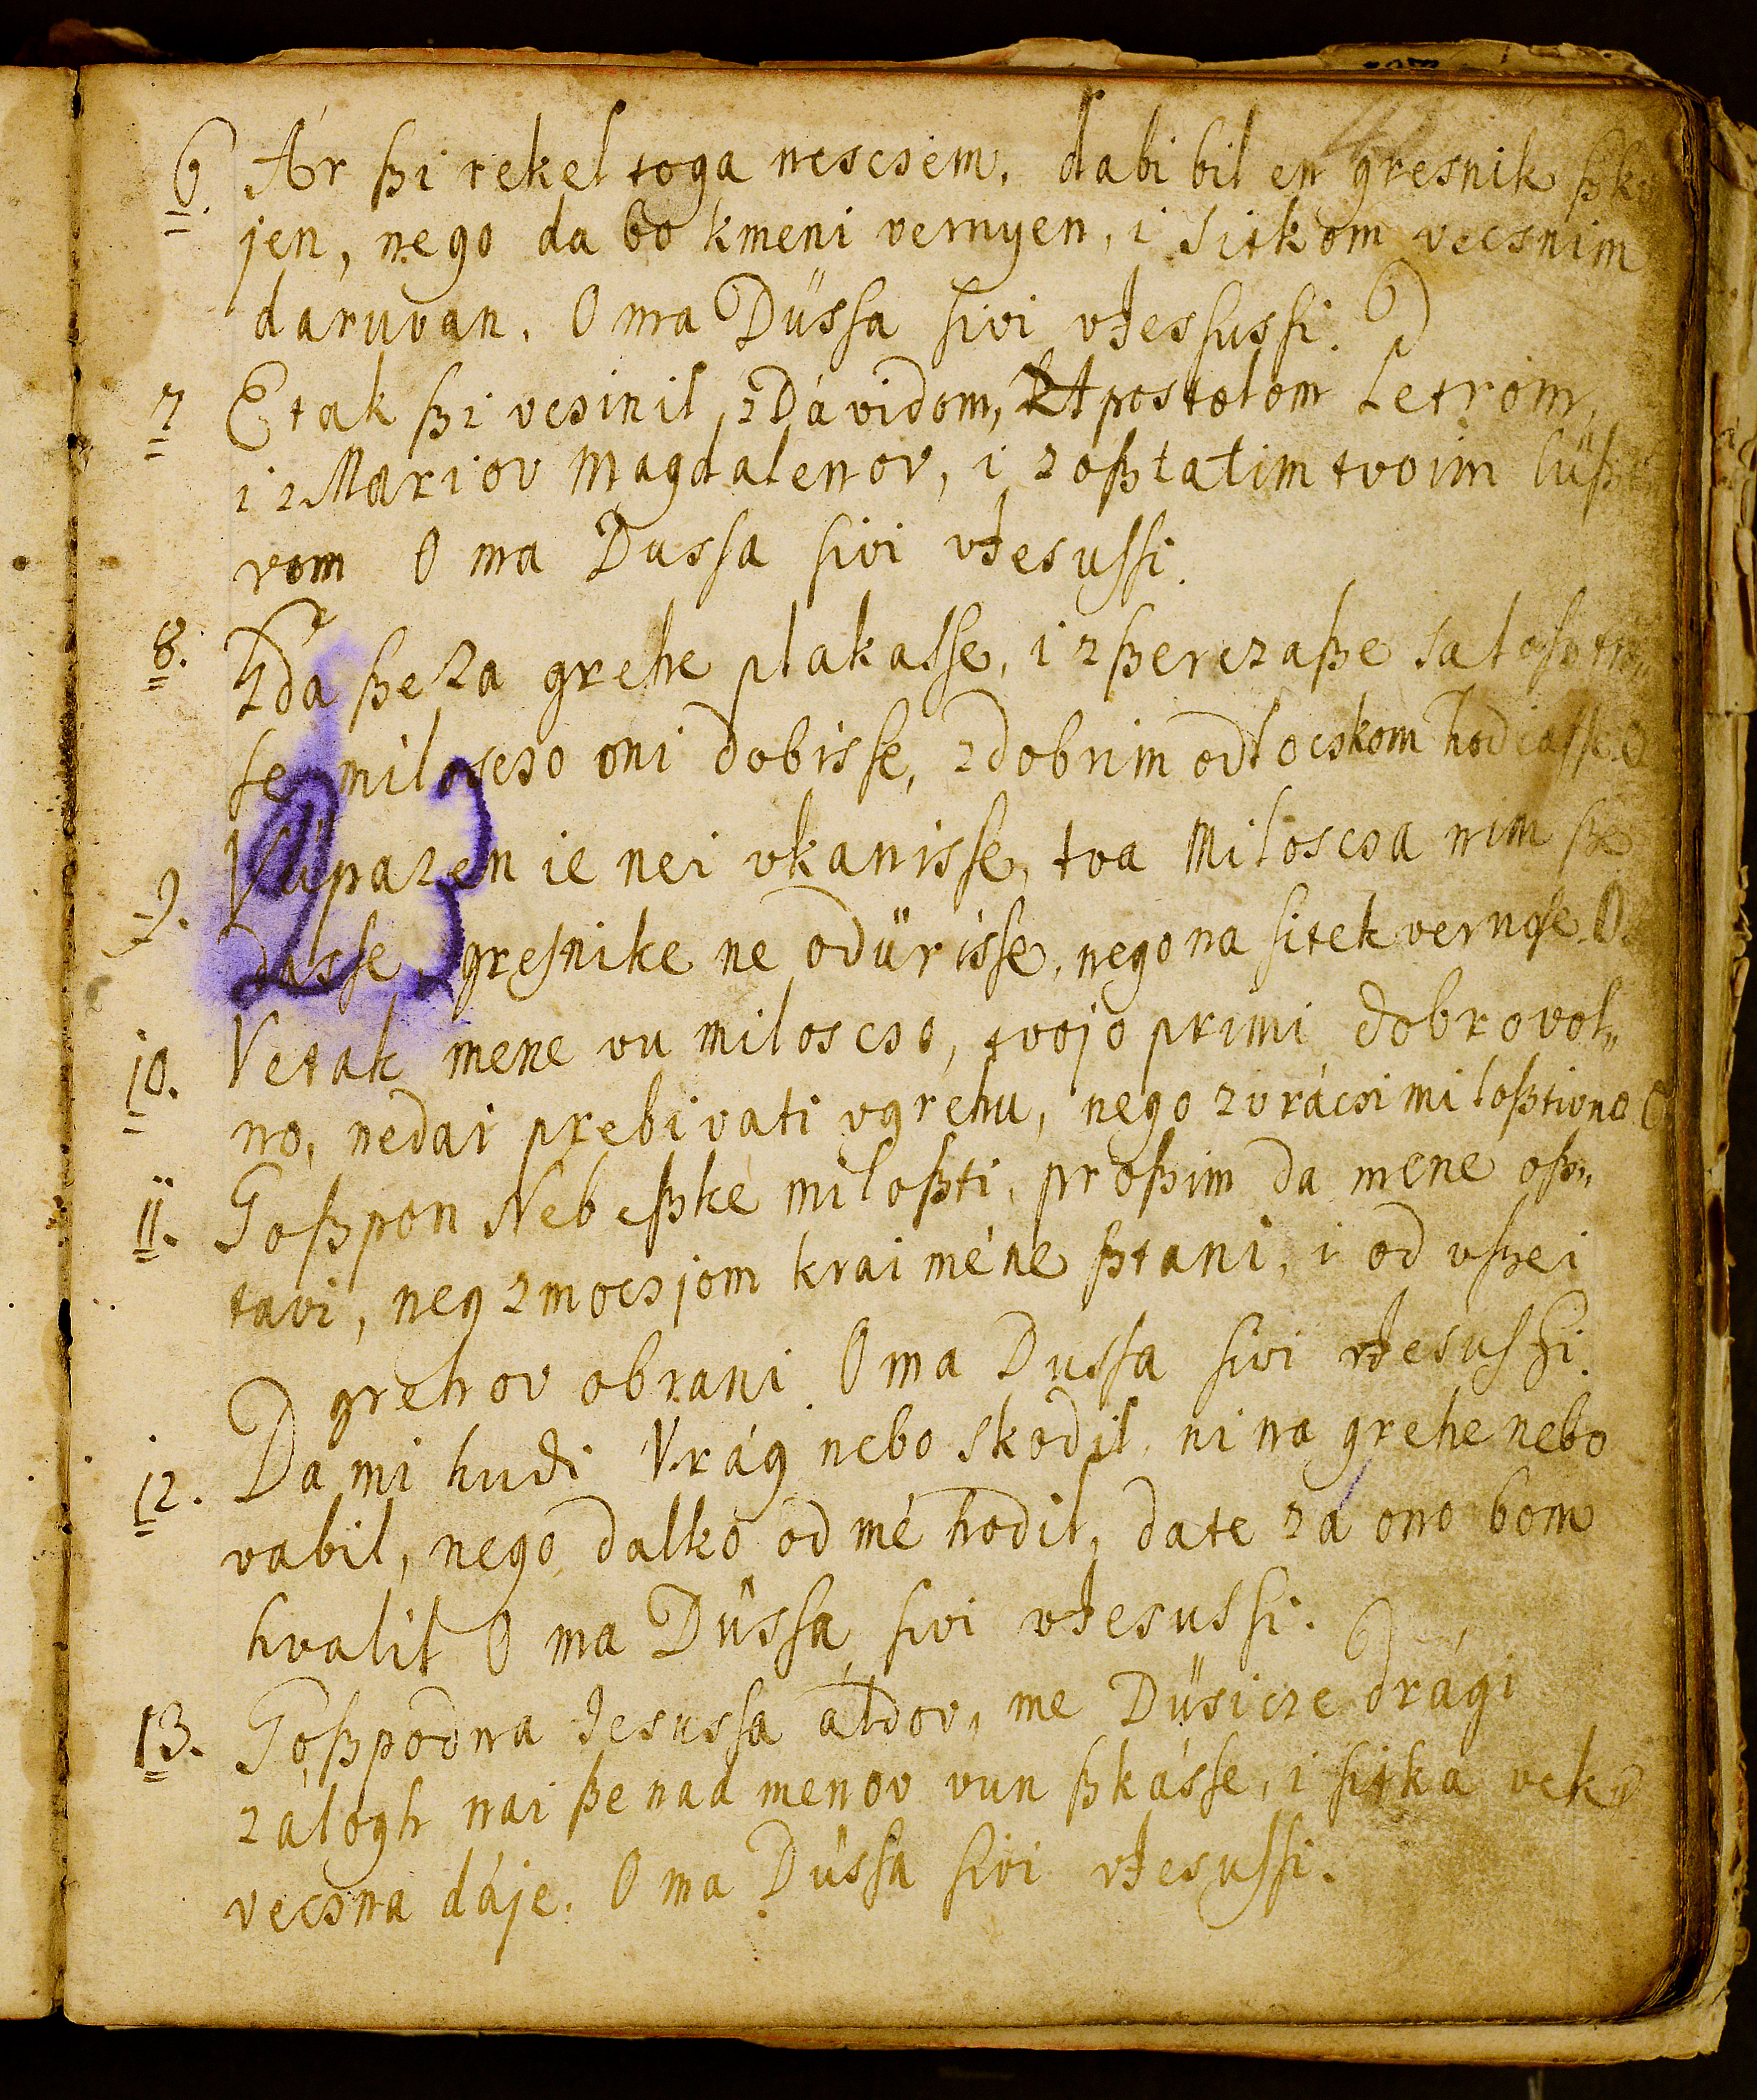 6 Ár ßi rekel toga nescsem, dabi bil en gresnik
jen, nego da bo kmeni vernyen, i sitkom vecsnim
daruvan, O ma Düssa sivi vJessussi.
7 Etak ßi vcsinil, zDávidom, Apostolom Petrom,
i z Mariov Magdalenov, i zoßtalim tvoim
rom O ma Dussa sivi vJesussi.
8. Kda ße za grehe plakasse, i zßerczaße
se, miloscso oni dobisse, zdobrim odlocskom hodiasse. O
9. Vüpazen ie nei vkanisse, tva Miloscsa nim ße
dasse, gresnike ne odürisse, nego na sitek vernose. O.
23
10. Vetak mene vu miloscsó, tvojo primi dobrovol„
no, nedai prebivati vgrehu, nego zvrácsi miloßtivno O
11. Goßpon Nebeßke miloßti, proßim da mene oß„
tavi, neg zmocsjom krai méne ßtani, i od vßei
grehov obrani O ma Dussa sivi vJesussi.
12. Da mi hudi Vrág nebo skodil, ni na grehe nebo
vabil, nego dalko od mé hodil, da te zá ono bom
hvalil O ma Düssa sivi vJesussi.
13. Goßpodna Jesussa áldov, me Düsicze drági
zálogh nai ße nad menov vun ßkásse, i sitka vek
vecsna dáje. O ma Düssa sivi vJesussi.